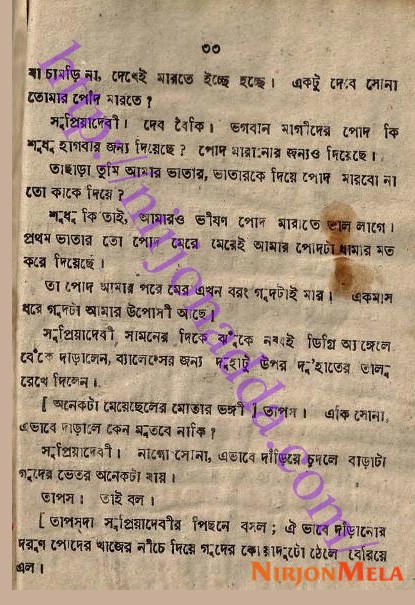 ৩৩
বা চামড়ি না, দেখেই মারতে ইচ্ছে হচ্ছে। একটু দেবে সোনা
তোমার পোঁদ মারতে?
সুপ্রিয়াদেবী। দেব বৈকি। ভগবান মাগীদের পোদ কি
শুধু হাগবার জন্য দিয়েছে? পোদ মারানোর জন্যও দিয়েছে।
তাছাড়া তুমি আমার ভাতার, ভাতারকে দিয়ে পোদ মারবো না
তো কাকে দিয়ে?
শুধু কি তাই, আমারও ভীষণ পোদ মারাতে ভাল লাগে।
প্রথম ভাতার তো পোদ মেরে মেরেই আমার পোদটা ধামার মত
করে দিয়েছে।
তা পোদ আমার পরে মের এখন বরং গুদটাই মার। একমাস
ধরে গুদটা আমার উপোসী আছে।
সুপ্রিয়াদেবী সামনের দিকে ঝুঁকে নব্বই ডিগ্রি অ্যাঙ্গেলে
বেঁকে দাঁড়ালেন, ব্যালেন্সের জন্য দুহাটু উপর দু'হাতের তালু
রেখে দিলেন।
[ অনেকটা মেয়েছেলের মোতার ভঙ্গী ] তাপস। একি সোনা,
এভাবে দাঁড়ালে কেন মুতবে নাকি?
সুপ্রিয়াদেবী। নাগো সোনা, এভাবে দাঁড়িয়ে চুদলে বাড়াটা
গুদের ভেতর অনেকটা যায়।
তাপস। তাই বল।
[ তাপসদা সুপ্রিয়াদেবীর পিছনে বসল; ঐ ভাবে দাঁড়ানোর
দরুণ পোদের খাজের নীচে দিয়ে গুদের কোয়াদুটো ঠেলে বেরিয়ে
এল।
http://nirjonadda.com/
NIRJONMELA